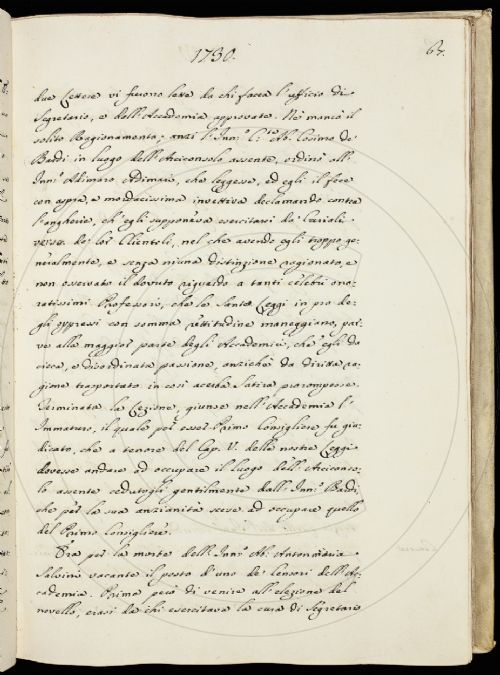 1730.
63.
due Lettere vi furono lette da chi facea l'uffizio di
Segretario, e dall'Accademia approvate. Nè mancò il
solito Ragionamento; anzi l'Inn.º Ab. Cosimo de
Bardi in luogo dell'Arciconsolo assente, ordinò all'
Inn.º Adimaro Adimari, che leggesse, ed egli il fece
con aspra, e mordacissima invettiva declamando contra
l'angherie, ch'egli supponeva esercitarsi da' Curiali
verso dei lor Clientoli, nel che avendo egli troppo ge-
neralmente, e senza niuna distinzione ragionato, e
non osservato il dovuto riguardo a tanti celebri ono-
ratissimi Professori, che le Sante Leggi in pro de-
gli oppressi con somma rettitudine maneggiano, par-
ve alla maggior parte degli Accademici, ch'egli da
cieca, e disordinata passione, anzichè da diritta ra-
gione trasportato in così acerba Satira prorompesse.
Terminata la Lezione, giunse nell'Accademia l'
Immaturo, il quale per esser Primo Consigliere fu giu-
dicato, che a tenore del Cap. V. delle nostre Leggi
dovesse andare ad occupare il luogo dell'Arciconso-
lo assente cedutogli gentilmente dall'Inn.º Bardi,
che per la sua anzianità scese ad occupare quello
del Primo Consigliere.
Era per la morte dell'Inn.º Ab. Antonmaria
Salvini vacante il posto d'uno de' Censori dell'Ac-
cademia. Prima però di venire all'elezione del
novello, erasi da chi esercitava la cura di Segretario